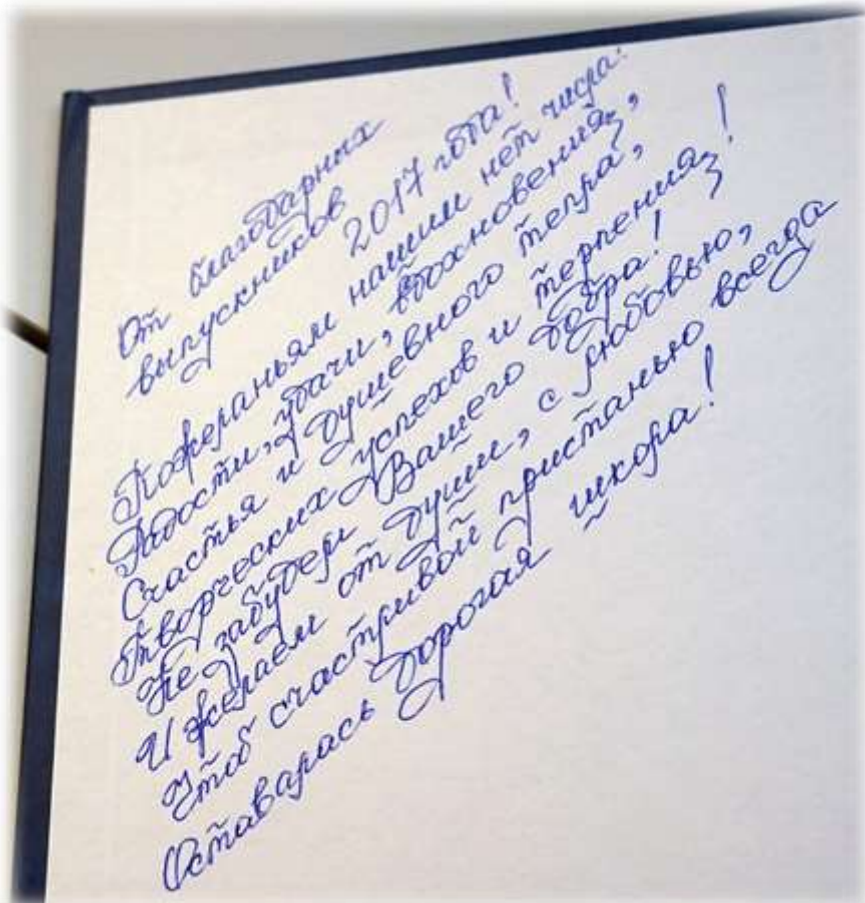 От благодарных
выпускников 2017 года!
Пожеланьям нашим нет числа:
Радости, удачи, вдохновения,
Счастья и душевного тепла,
Творческих успехов и терпения!
Не забудем Вашего добра!
И желаем от души, с любовью,
Чтоб счастливой пристанью всегда
Оставалась дорогая школа!